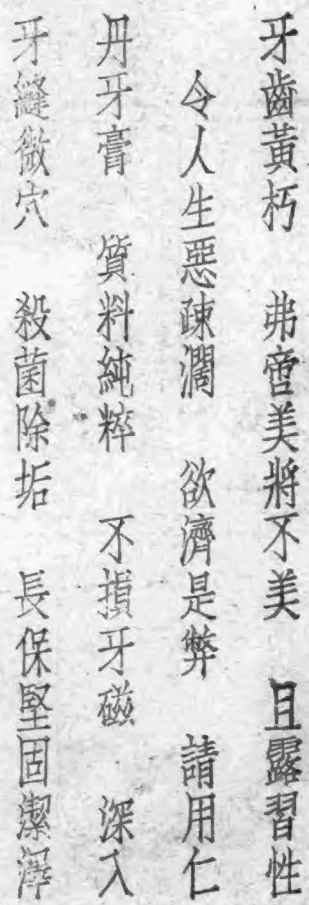 牙齒黃朽 弗啻美將不美 且露習性
令人生惡疎濶 欲濟是弊 請用仁
丹牙膏 質料純粹 不損牙磁 深入
牙縫微穴 殺菌除垢 長保堅固潔澤